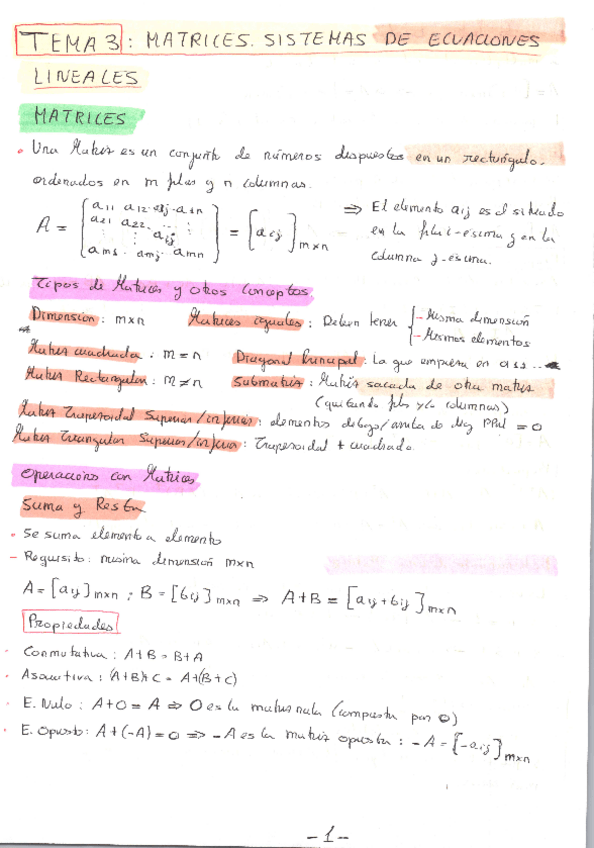 TEMA 3: MATRICES. SISTEMAS DE ECUACIONES
LINEALES
MATRICES
• Una Matriz es un conjunto de números dispuestos en un rectángulo.
ordenados en m filas y n columnas.
A = [a11 a12 ... a1j ... a1n; a21 a22 ...; aij; am1 amj amn] = [aij]m×n ⇒ El elemento aij es el situado
en la fila i-esima y en la
columna j-esima.
Tipos de Matrices y otros conceptos.
Dimensión: m×n Matrices iguales: Deben tener { - Misma dimensión
- Mismos elementos
Matriz cuadrada: m = n Diagonal Principal: La que empieza en a11...
Matriz Rectangular: m ≠ n Submatriz: Matriz sacada de otra matriz
(quitando filas y/o columnas)
Matriz Trapezoidal Superior/inferior: elementos debajo/arriba de Diag PPal = 0
Matriz Triangular Superior/inferior: Trapezoidal + cuadrada.
Operaciones con Matrices
Suma y Resta
• Se suma elemento a elemento
- Requisito: misma dimensión m×n
A = [aij]m×n ; B = [bij]m×n ⇒ A+B = [aij+bij]m×n
Propiedades
· Conmutativa: A+B = B+A
· Asociativa: (A+B)+C = A+(B+C)
· E. Nulo: A+0 = A ⇒ 0 es la matriz nula (compuesta por 0)
· E. Opuesto: A+(-A) = 0 ⇒ -A es la matriz opuesta: -A = [-aij]m×n
-1-